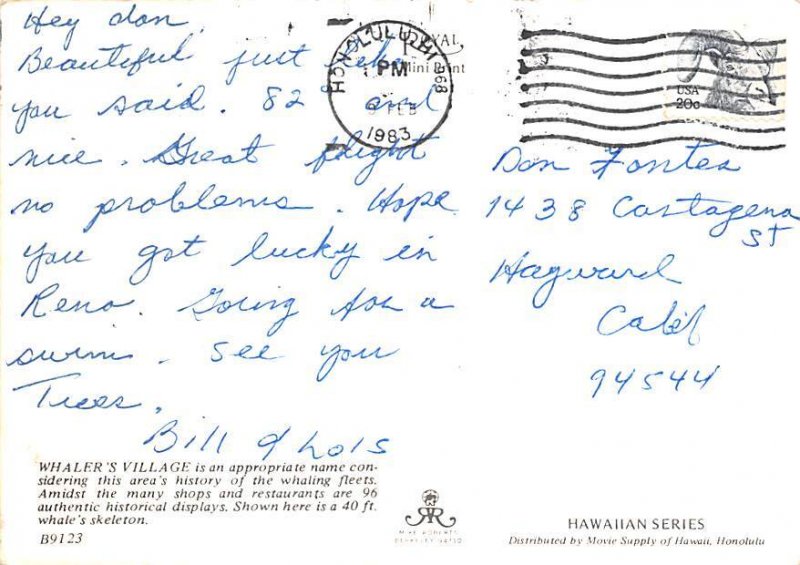 Hey don,
Beautiful just like
you said. 82° and
nice. Great flight
no problems. Hope
you got lucky in
Reno. Going for a
swim. See you
Tues.
Bill & Lois
HONOLULU, HI 968
PM
FEB
1983
Mini Print
USA
20c
Don Fontes
1438 Cartagena
St
Hayward
Calif
94544
WHALER'S VILLAGE is an appropriate name con-
sidering this area's history of the whaling fleets.
Amidst the many shops and restaurants are 96
authentic historical displays. Shown here is a 40 ft.
whale's skeleton.
B9123
MIKE ROBERTS
BERKELEY 94710
HAWAIIAN SERIES
Distributed by Movie Supply of Hawaii, Honolulu